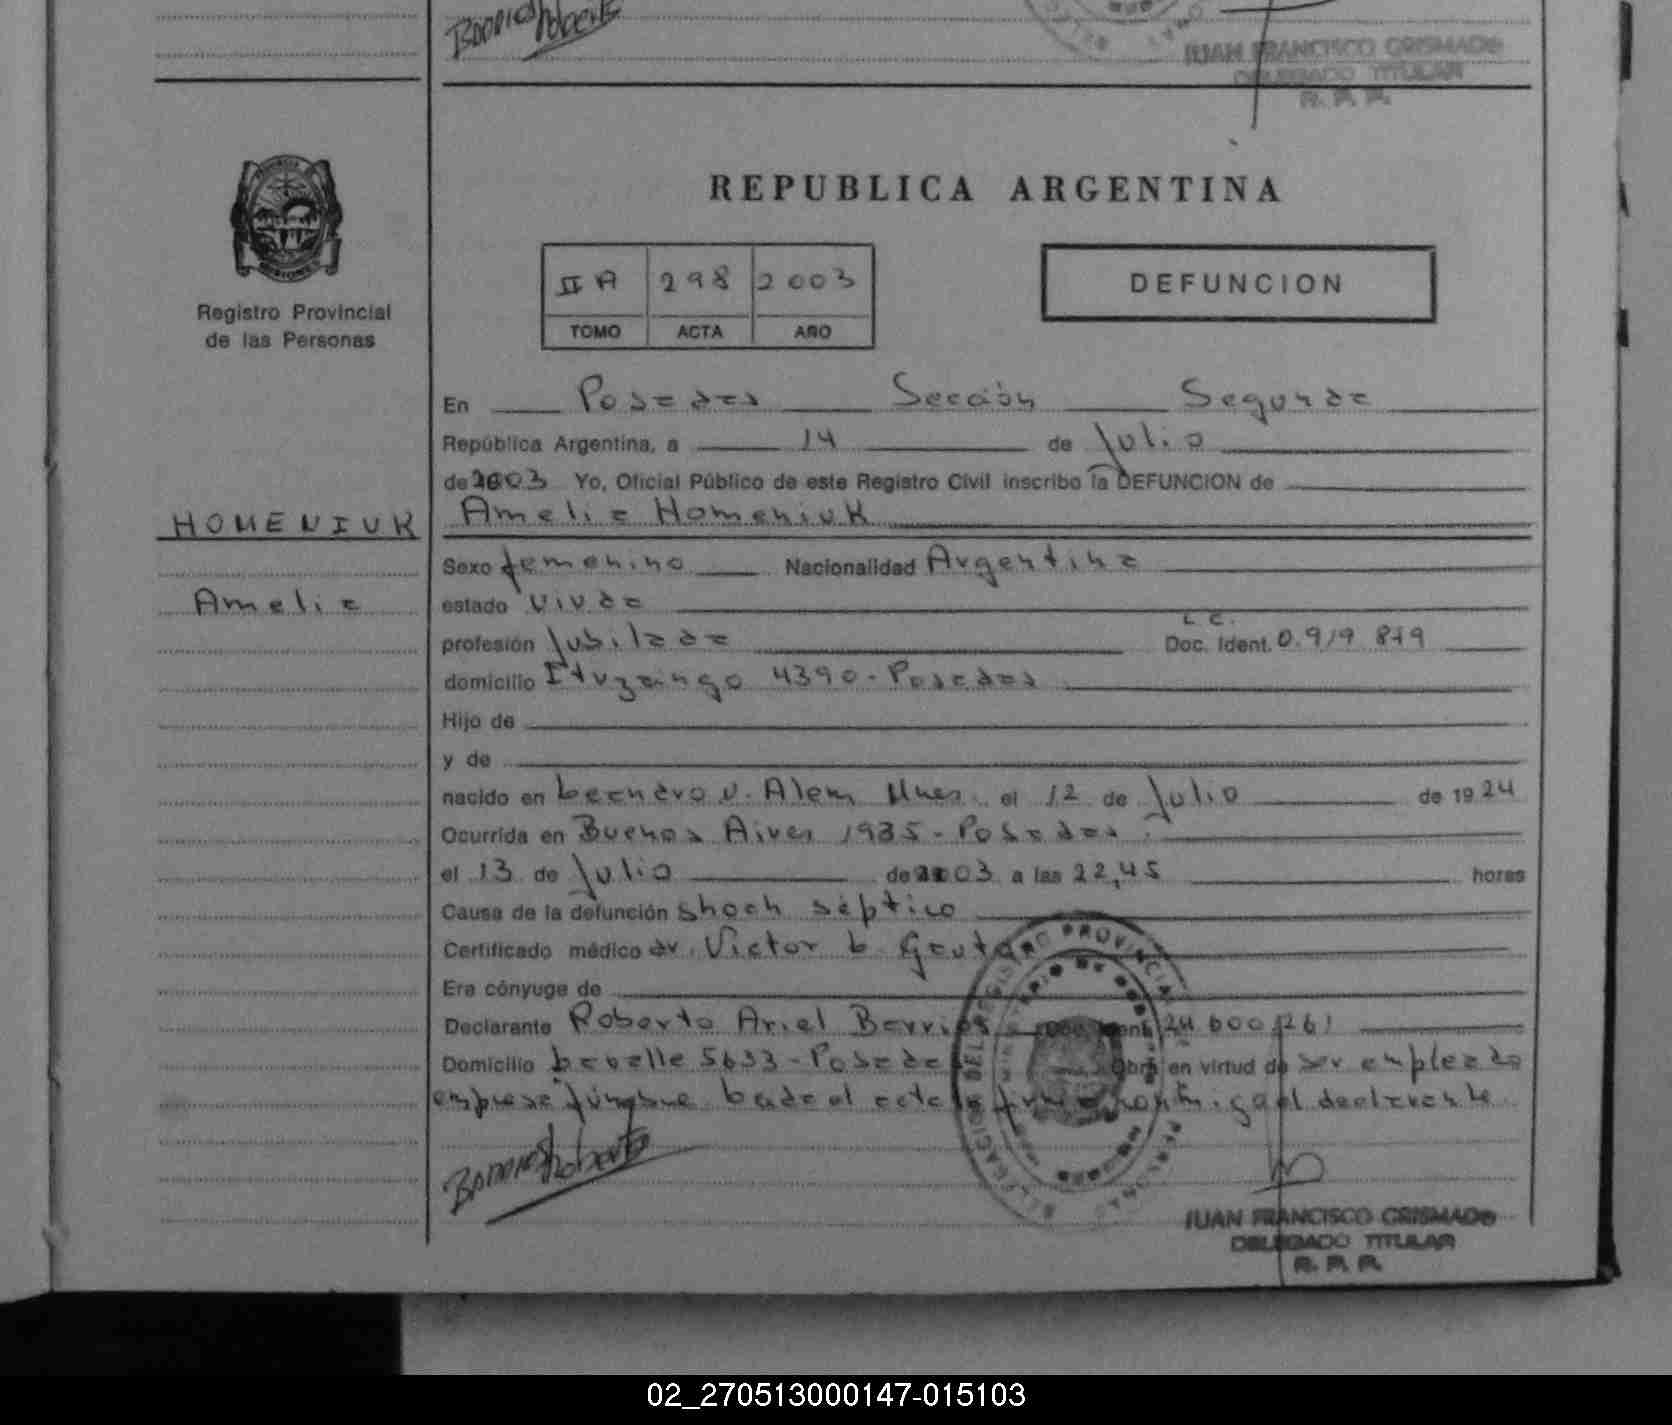 Barrios Roberto
JUAN FRANCISCO GRISMADO
DELEGADO TITULAR
R. P. P.
REPUBLICA ARGENTINA
II A 298 2003
TOMO ACTA AÑO
DEFUNCION
Registro Provincial
de las Personas
En Posadas Sección Segunda
República Argentina, a 14 de Julio
de 2003 Yo, Oficial Público de este Registro Civil inscribo la DEFUNCION de
HOMENIUK
Amelia Homeniuk
Sexo femenino Nacionalidad Argentina
Amelia
estado viuda
L.C.
profesión Jubilada Doc. Ident. 0.919.819
domicilio Ituzaingo 4390 - Posadas
Hijo de
y de
nacido en Leandro N. Alem Mnes. el 12 de Julio de 1924
Ocurrida en Buenos Aires 1935 - Posadas
el 13 de Julio de 2003 a las 22,45 horas
Causa de la defunción shock séptico
Certificado médico dr. Victor
Era cónyuge de
Declarante Roberto Ariel Barrios Doc. Ident. 24.600.261
Domicilio 5633 - Posadas Obra en virtud de ser empleado
empresa fúnebre. Leida el acta la firma conmigo el declarante
Barrios Roberto
JUAN FRANCISCO GRISMADO
DELEGADO TITULAR
R. P. P.
02_270513000147-015103